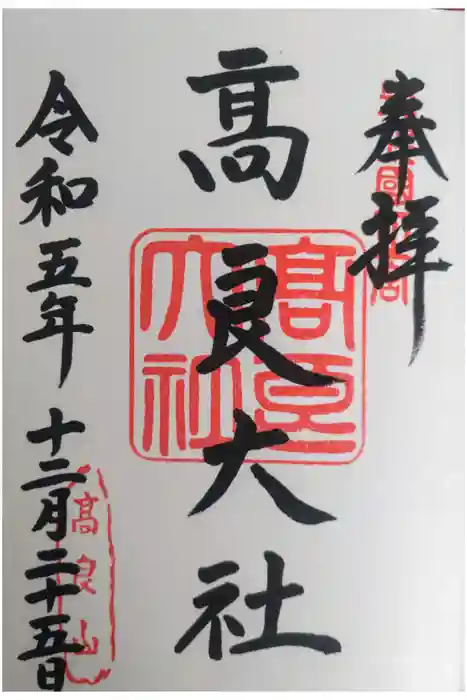 奉拝
高良大社
高良大社
令和五年十二月二十五日
高良山